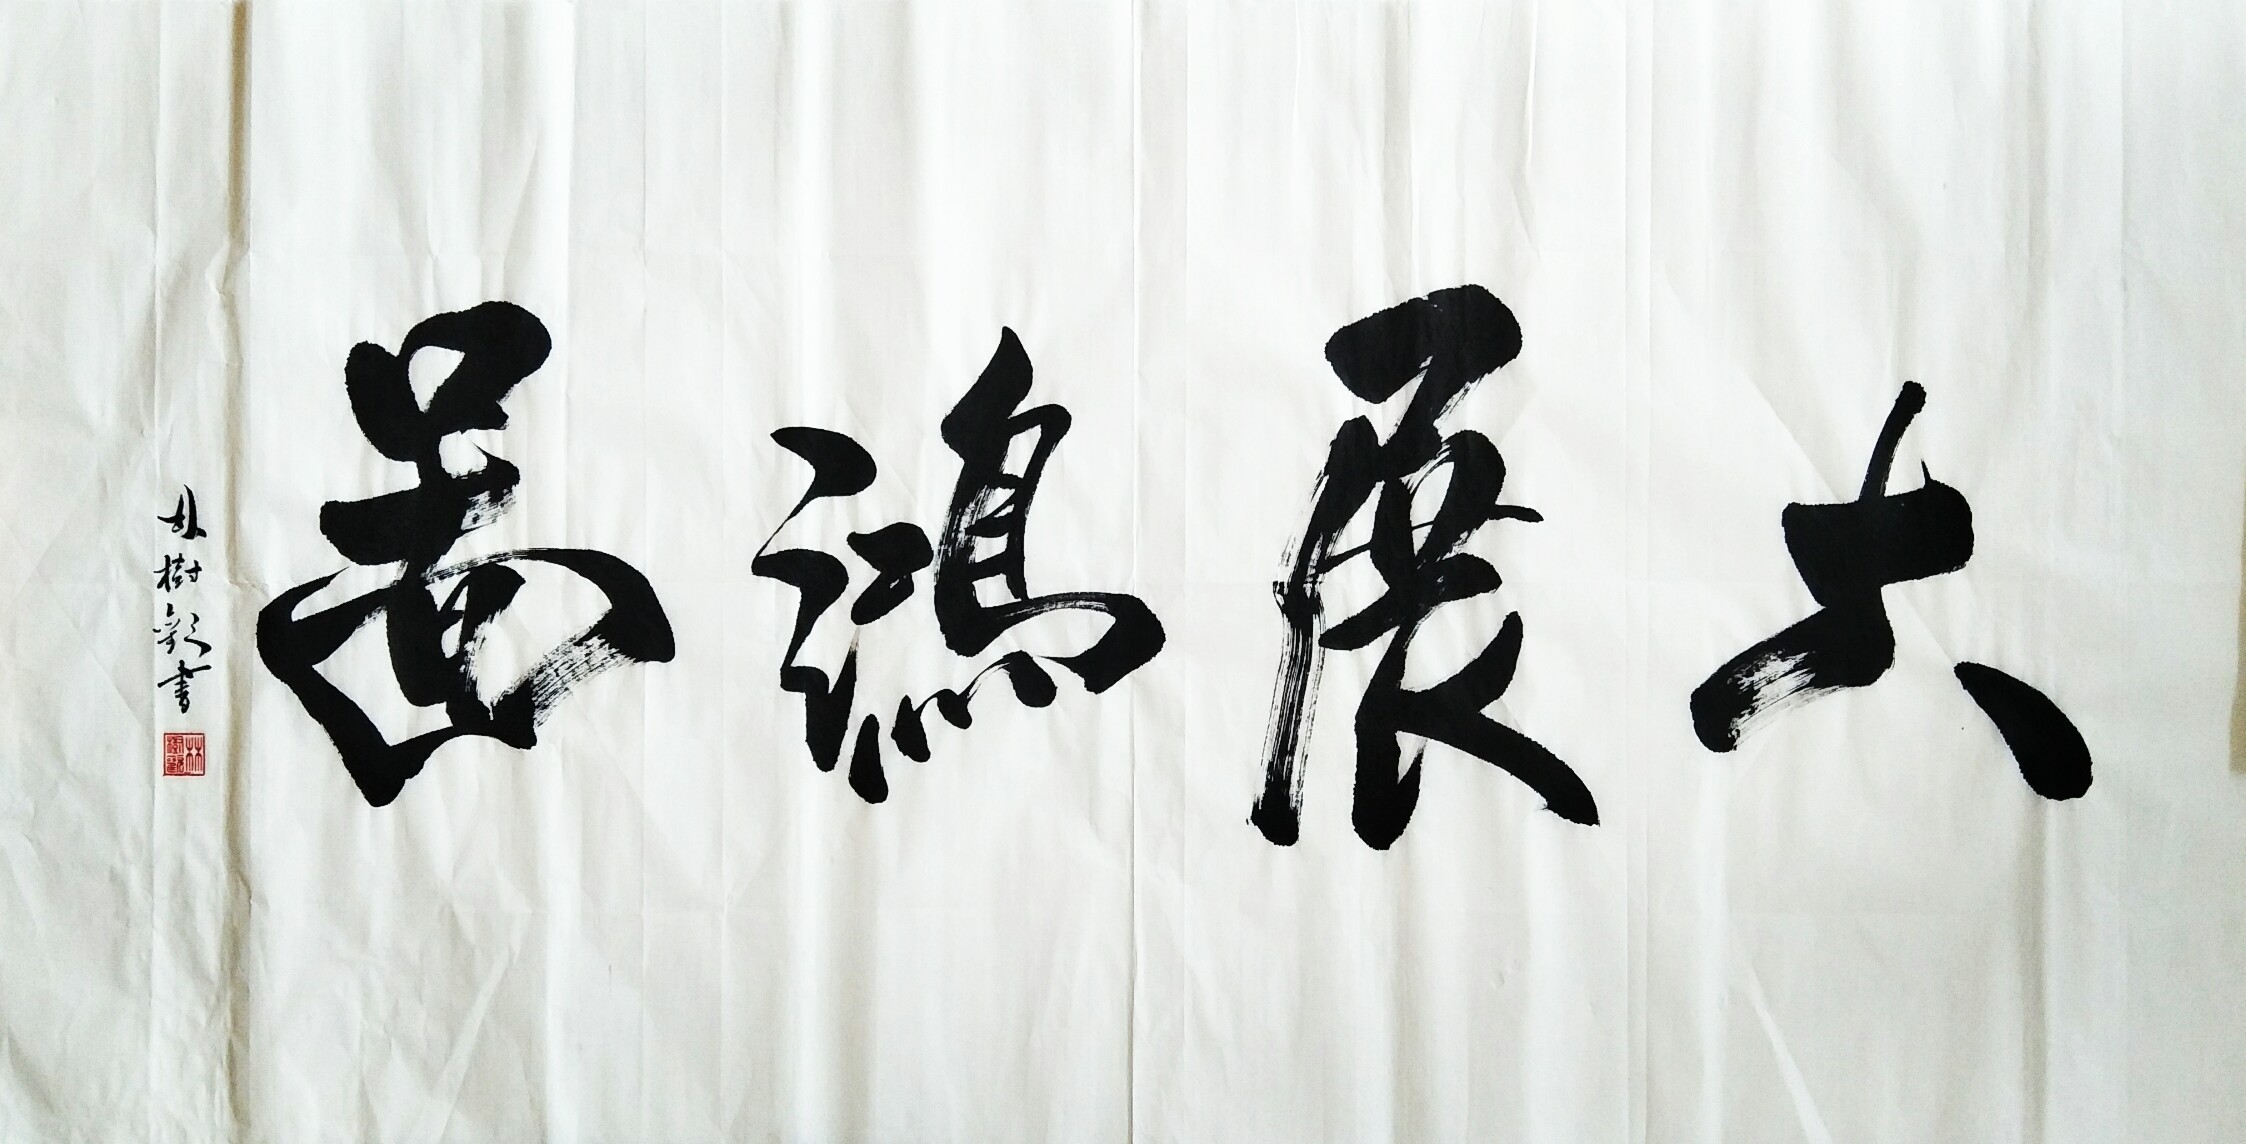 大展鴻圖
林樹歡書